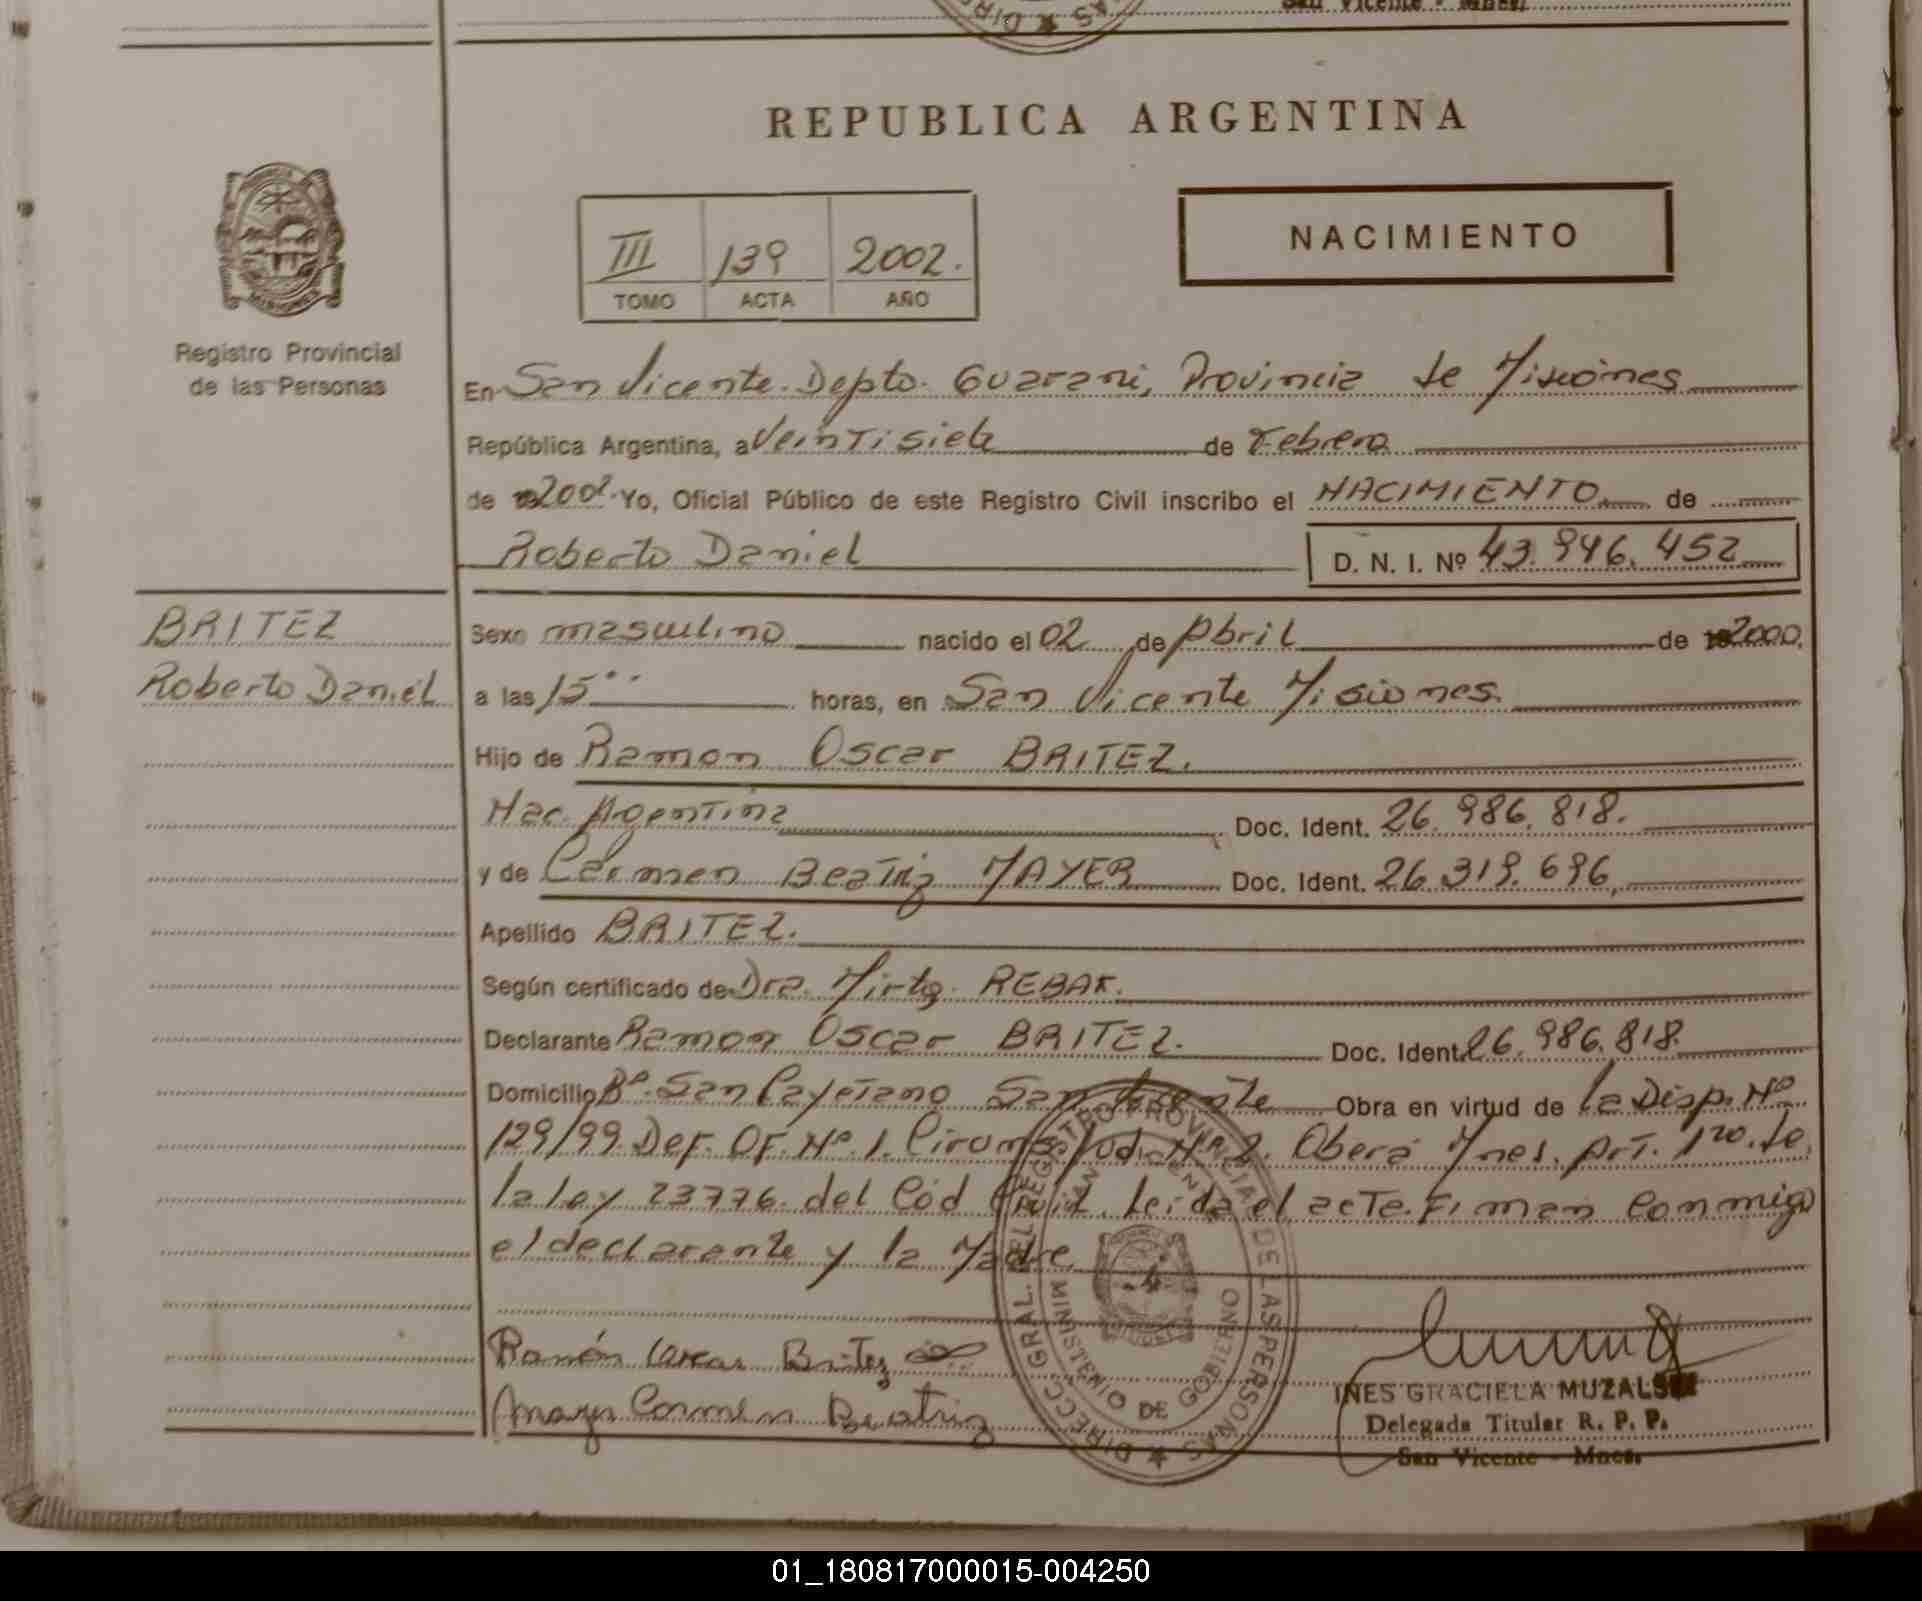 San Vicente - Mnes.
REPUBLICA ARGENTINA
III 139 2002.
TOMO ACTA AÑO
NACIMIENTO
MISIONES
Registro Provincial
de las Personas
En San Vicente. Depto. Guarani, Provincia de Misiones
República Argentina, a Veintisiete de Febrero
de 2002. Yo, Oficial Público de este Registro Civil inscribo el NACIMIENTO de
Roberto Daniel D. N. I. Nº 43.946.452
BRITEZ
Roberto Daniel
Sexo masculino nacido el 02 de Abril de 2000.
a las 15 horas, en San Vicente Misiones.
Hijo de Ramon Oscar BRITEZ.
Nac. Argentina Doc. Ident. 26.986.818.
y de Carmen Beatriz MAYER Doc. Ident. 26.319.696,
Apellido BRITEZ.
Según certificado de Dra. Mirta REBAK.
Declarante Ramon Oscar BRITEZ. Doc. Ident. 26.986.818.
Domicilio Bº. San Cayetano San Vicente Obra en virtud de la Disp. Nº
129/99. Def. Of. Nº 1. Circuns. Jud. Nº 2. Obera Mnes. Art. 1º de
la ley 23776. del Cód Civil. Leida el acta. Firman conmigo
el declarante y la Madre
DIRECC GRAL. DEL REGISTRO PROVINCIAL DE LAS PERSONAS
SAN VICENTE
MINISTERIO DE GOBIERNO
Ramón Oscar Britez
Mayer Carmen Beatriz
INES GRACIELA MUZALS
Delegada Titular R. P. P.
San Vicente - Mnes.
01_180817000015-004250